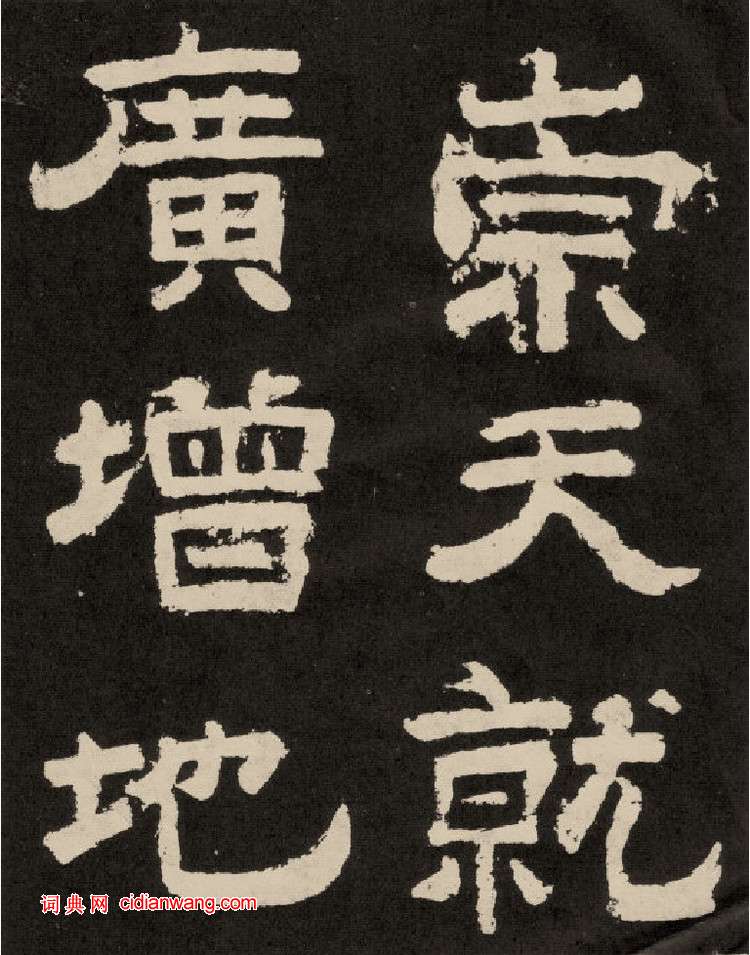 崇天就
廣增地
词典网 cidianwang.com